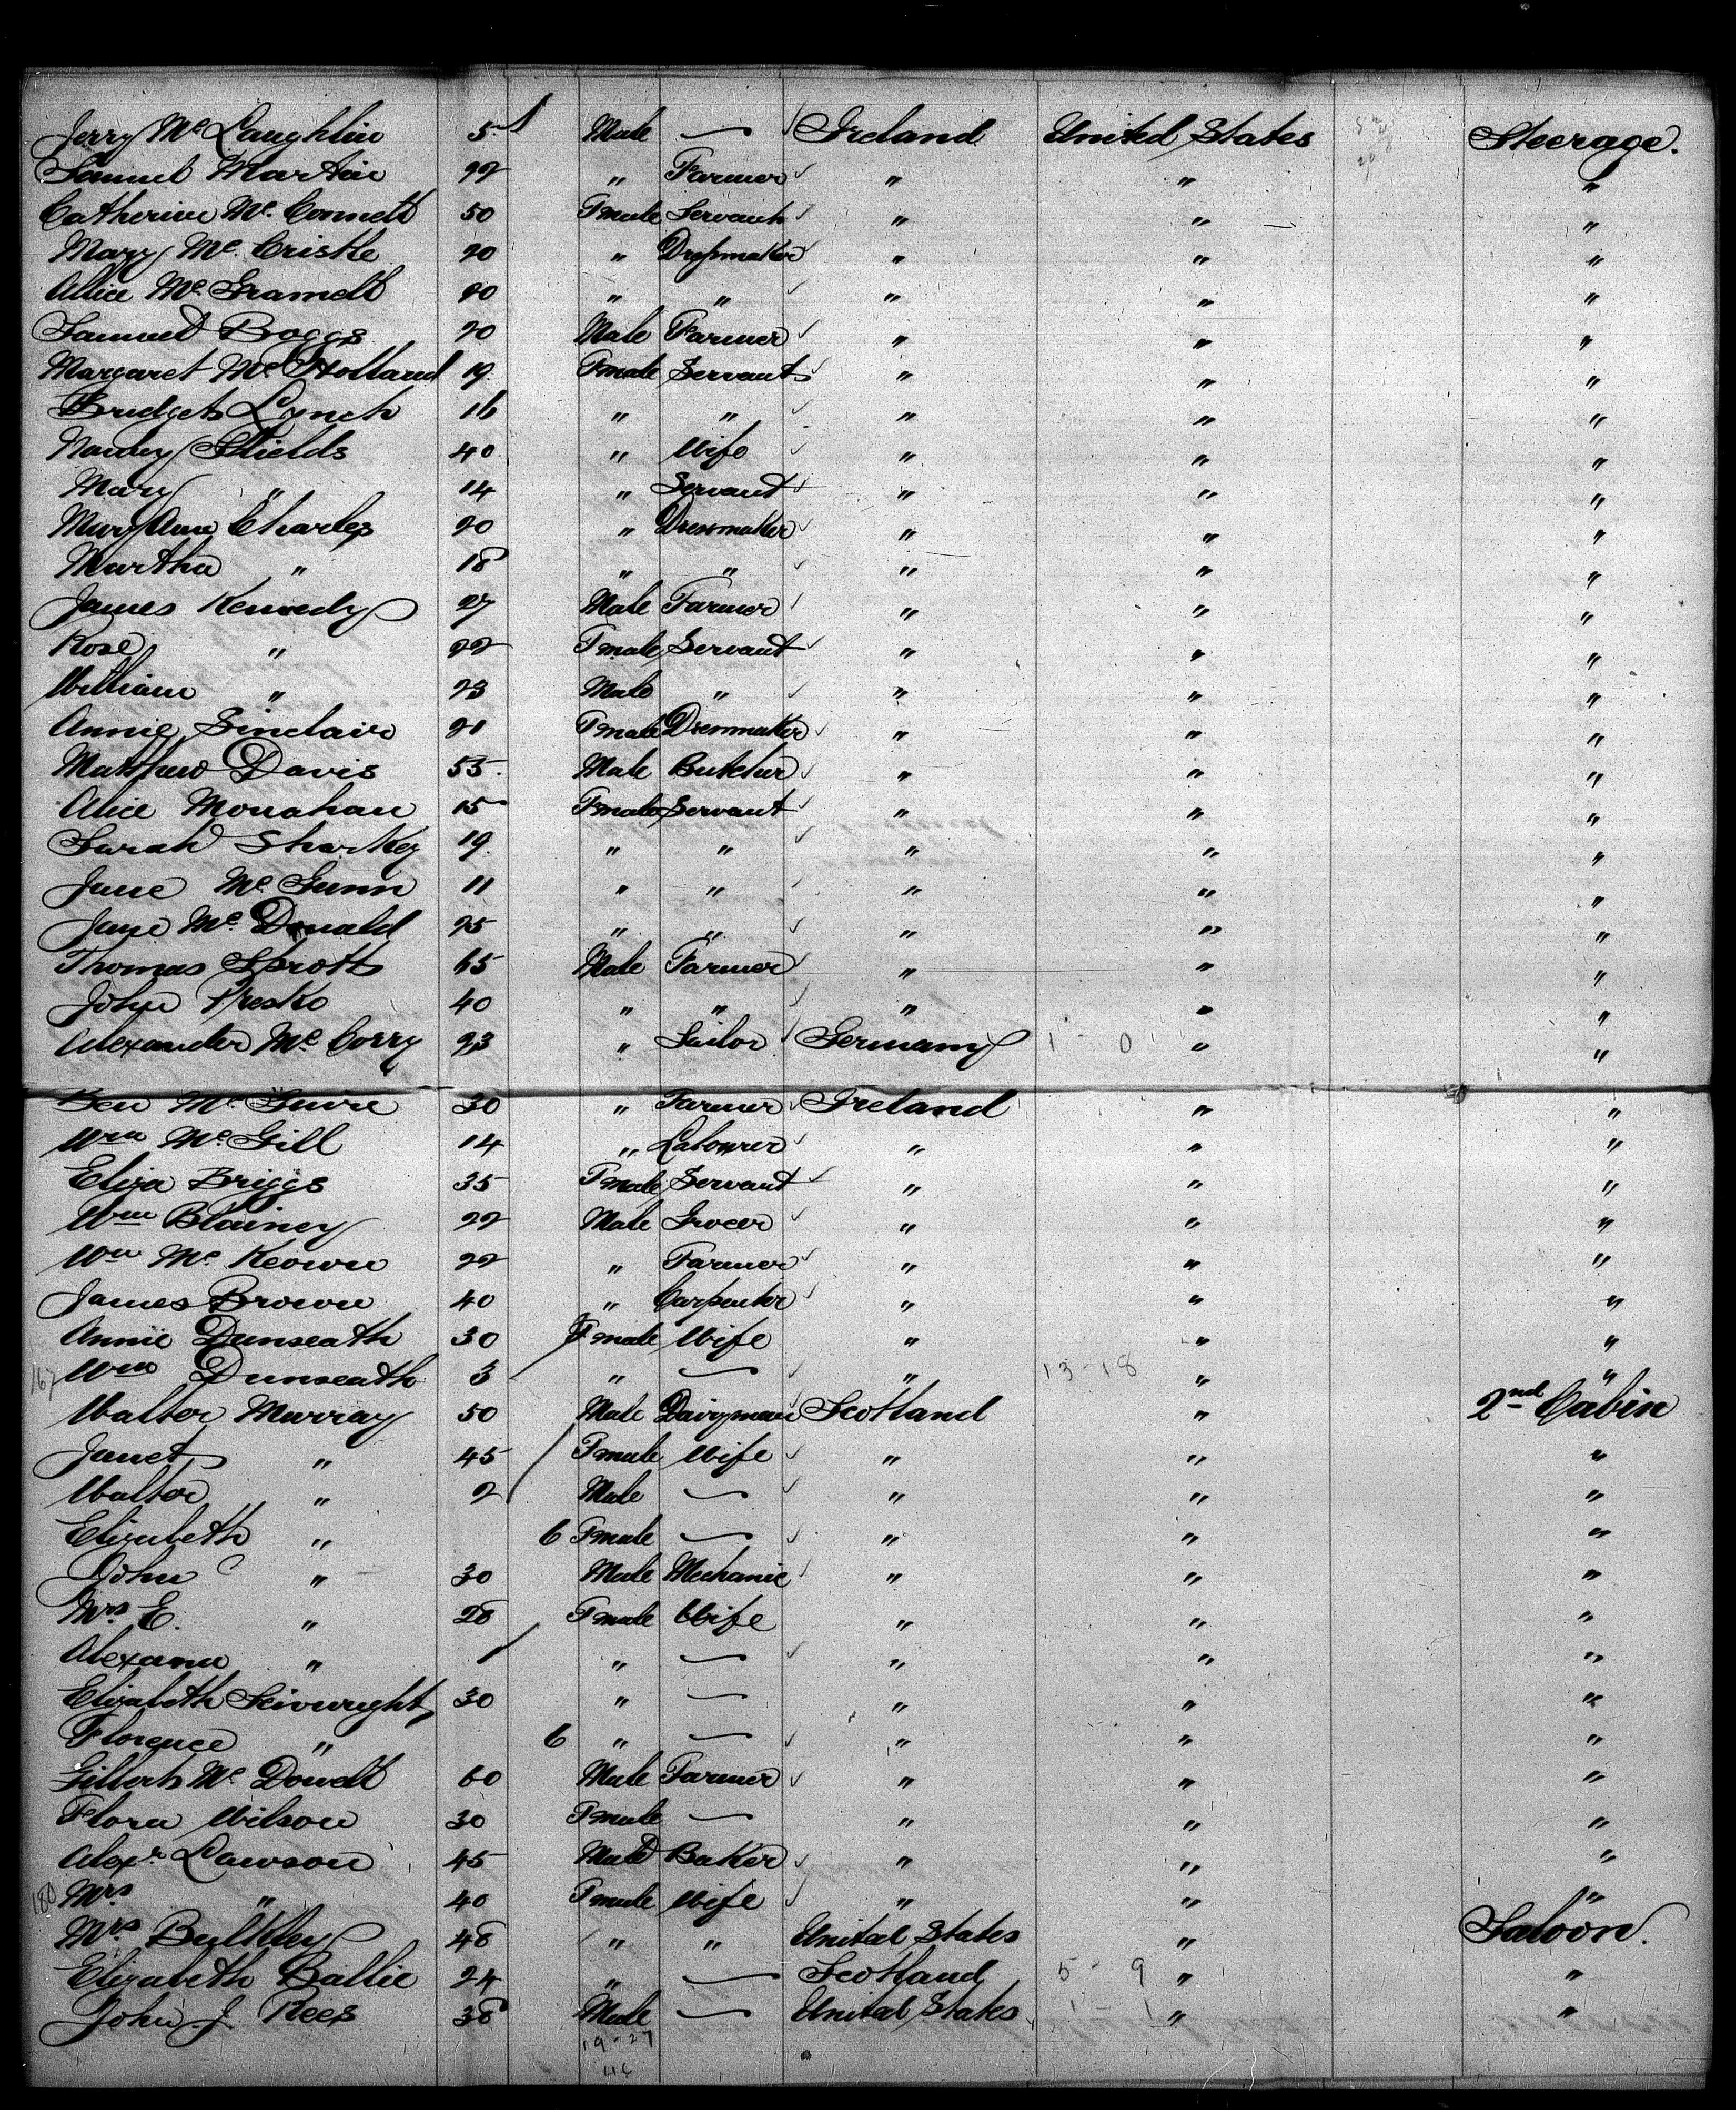 Jerry McLaughlin 5 Male — Ireland United States Steerage.
Samuel Martin 22 " Farmer " " "
Catherine McConnell 50 Fmale Servant " " "
Mary McCristle 20 " Dressmaker " " "
Alice Mc 20 " " " " "
Samuel Boggs 20 Male Farmer " " "
Margaret McHolland 19 Fmale Servant " " "
Bridget Lynch 16 " " " " "
Nancy Shields 40 " Wife " " "
Mary " 14 " Servant " " "
Mary Ann Charles 20 " Dressmaker " " "
Martha " 18 " " " " "
James Kennedy 27 Male Farmer " " "
Rose " 22 Fmale Servant " " "
William " 23 Male " " " "
Annie Sinclair 21 Fmale Dressmaker " " "
Matthew Davis 55 Male Butcher " " "
Alice Monahan 15 Fmale Servant " " "
Sarah Sharkey 19 " " " " "
Jane McGunn 11 " " " " "
Jane McDonald 25 " " " " "
Thomas Sprott 65 Male Farmer " " "
John Presko 40 " " " " "
Alexander McCorry 23 " Sailor Germany 1 - 0 " "
Ben McGuire 30 " Farmer Ireland " "
Wm McGill 14 " Labourer " " "
Eliza Briggs 35 Fmale Servant " " "
Wm Blainey 22 Male Grocer " " "
Wm McKeown 22 " Farmer " " "
James Brown 40 " Carpenter " " "
Annie Dunseath 30 Fmale Wife " " "
167 Wm Dunseath 3 " — " 13 - 18 " "
Walter Murray 50 Male Dairyman Scotland " 2nd Cabin
Janet " 45 Fmale Wife " " "
Walter " 2 Male — " " "
Elizabeth " 6 Fmale — " " "
John " 30 Male Mechanic " " "
Mrs E. " 28 Fmale Wife " " "
Alexana " 1 " — " " "
Elizabeth Seivwright 30 " — " " "
Florence " 6 " — " " "
Gilbert McDowell 60 Male Farmer " " "
Flora Wilson 30 Fmale — " " "
Alexr Lawson 45 Male Baker " " "
180 Mrs " 40 Fmale Wife " " "
Mrs Bulkley 48 " " United States " Saloon.
Elizabeth Ballie 24 " — Scotland 5 - 9 " "
John J. Rees 38 Male — United States 1 - 1 " "
19 - 27
46